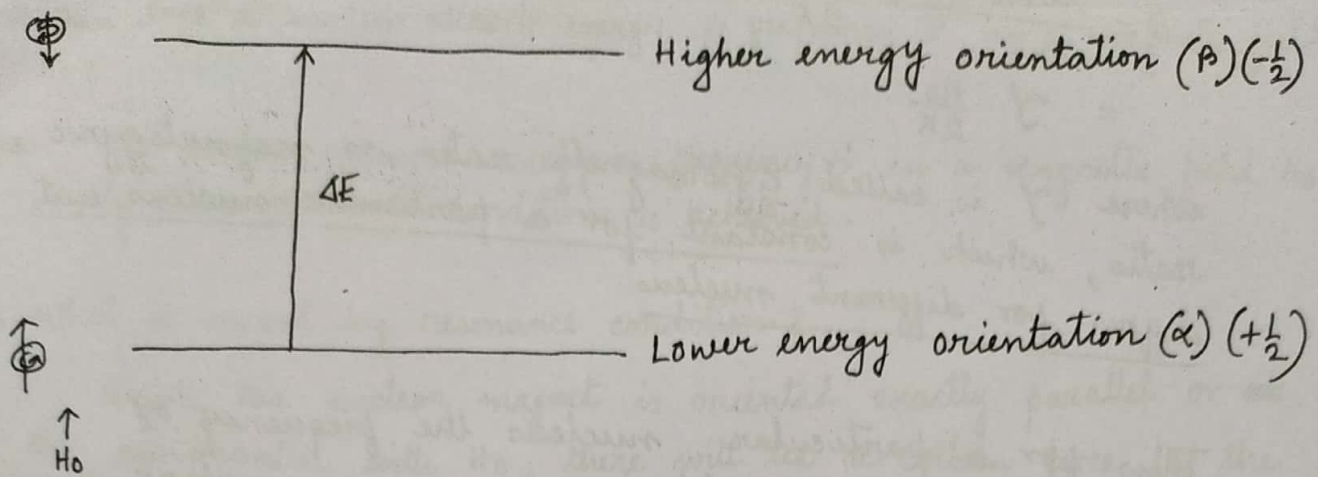 Higher energy orientation (β)(-1/2)
ΔE
Lower energy orientation (α) (+1/2)
H0